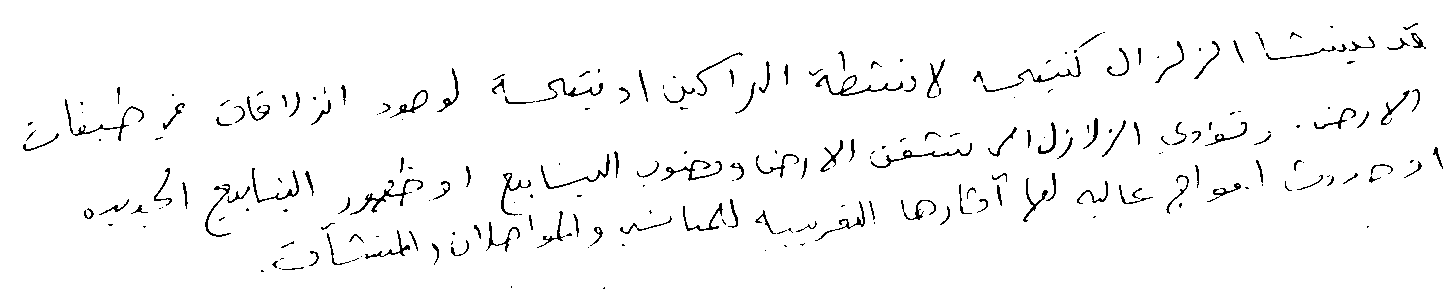 قد ينشا الزلزال كنتيجه لانشطة البراكين او نتيجة لوجود انزلاقات في طبقات
الارض. وتؤدي الزلازل الى تشقق الارض ونضوب الينابيع او ظهور الينابيع الجديده
او حدوث امواج عاليه لها آثارها التخريبيه للمباني والمواصلات والمنشآت.